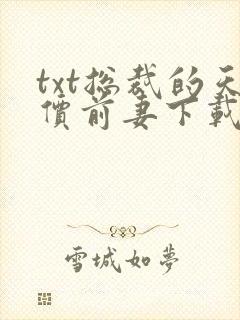 txt总裁的天
價前妻下載
雪城如夢